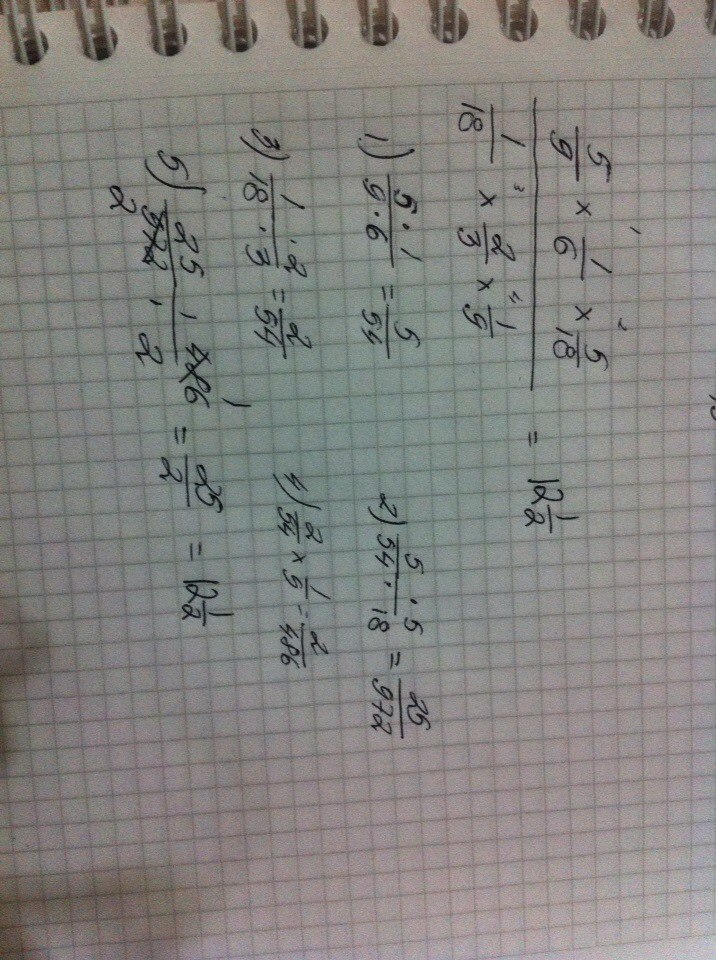 5/9 × 1/6 × 5/18
1/18 × 2/3 × 1/9
= 12 1/2
1) 5·1/9·6 = 5/54
2) 5·5/54·18 = 25/972
3) 1·2/18·3 = 2/54
4) 2/54 × 1/9 = 2/486
5) 25 · 486 1/972 · 2 2 = 25/2 = 12 1/2